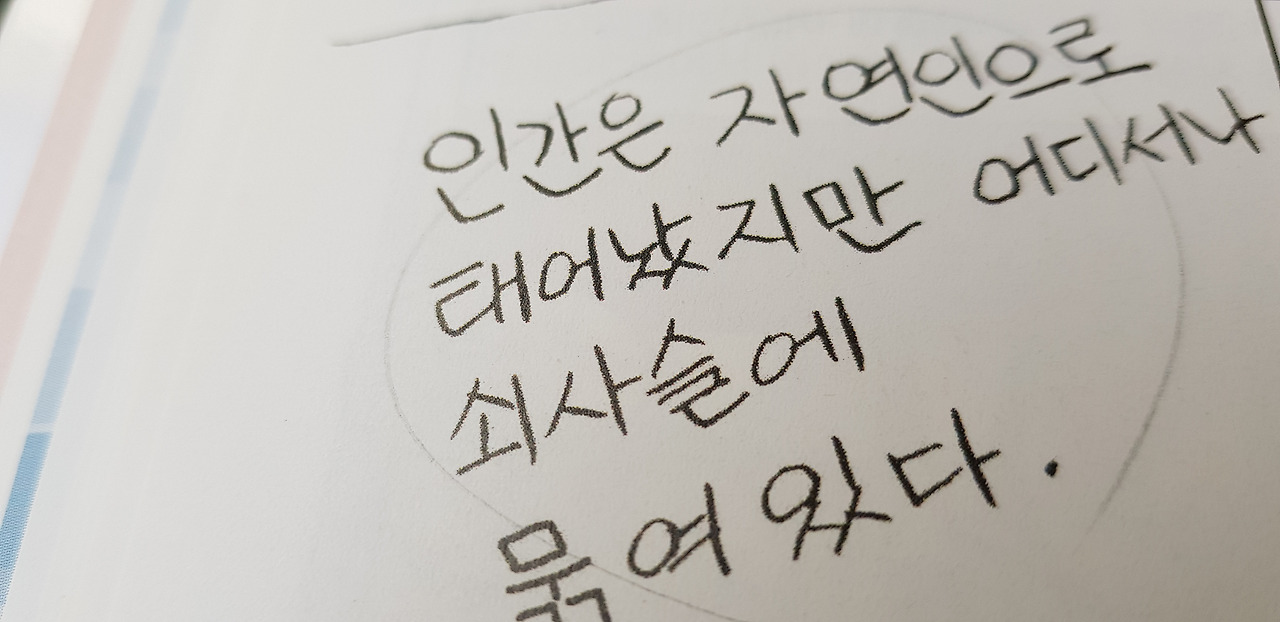 인간은 자연인으로
태어났지만 어디서나
쇠사슬에
묶여 있다.